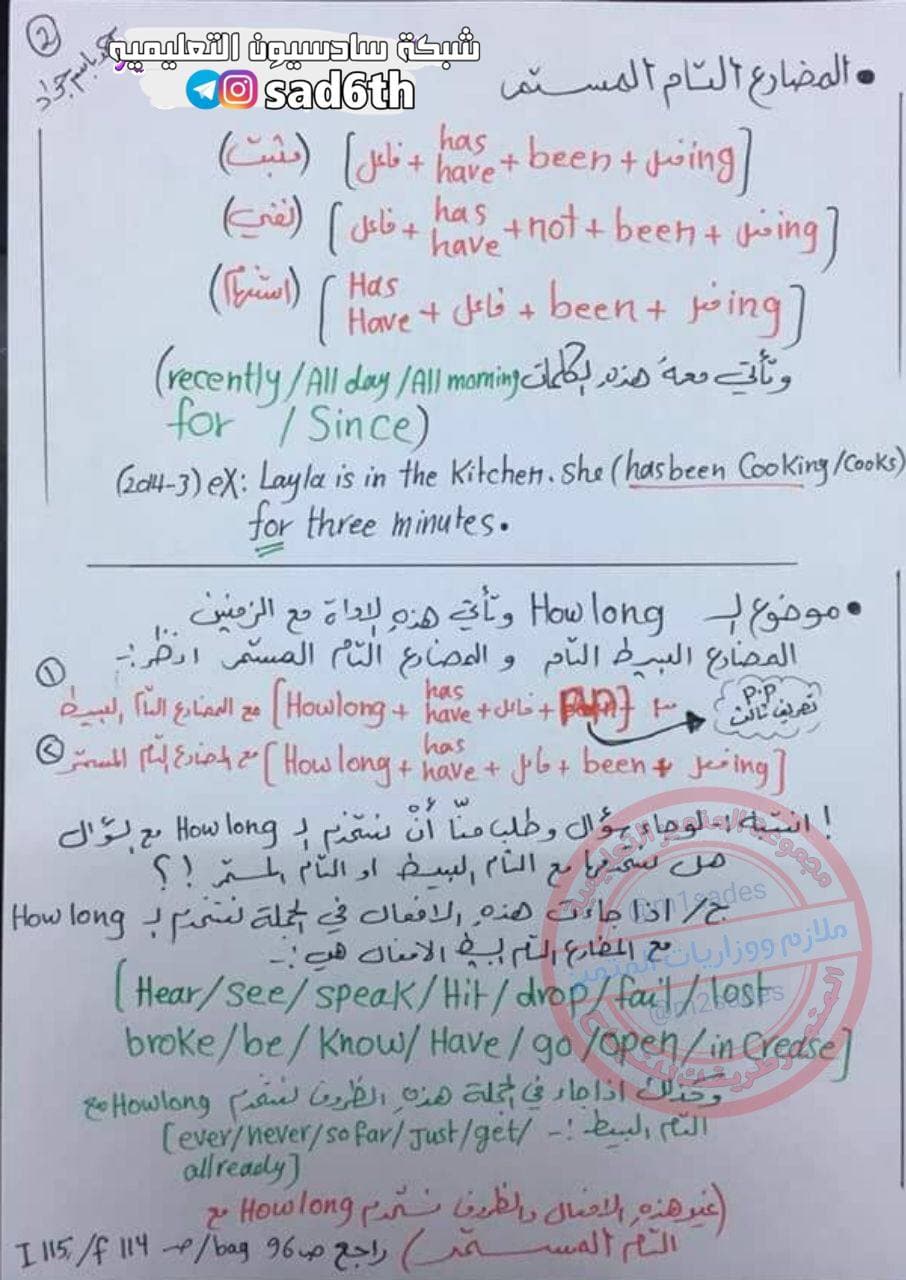 ②
شبكة سادسيون التعليمية
sad6th
• المضارع التام المستمر
(مثبت) [فاعل + has / have + been + فعل ing]
(نفي) [فاعل + has / have + not + been + فعل ing]
(استفهام) [Has / Have + فاعل + been + فعل ing]
وتأتي معه هذه الكلمات (recently / All day / All morning
for / Since)
(2014-3) ex: Layla is in the Kitchen. She (has been Cooking / Cooks)
for three minutes.
• موضوع الـ How long وتأتي هذه الاداة مع الزمنين
المضارع البسيط التام و المضارع التام المستمر انظر :-
① مع المضارع التام البسيط [How long + has / have + فاعل + p.p]
p.p تصريف ثالث
② مع المضارع التام المستمر [How long + has / have + فاعل + been + فعل ing]
! انتبه :- لو جاء سؤال وطلب منّا أنْ نستخدم الـ How long مع سؤال
هل نستخدمها مع التام البسيط او التام المستمر !؟
ج/ اذا جاءت هذه الافعال في الجملة نستخدم الـ How long
مع المضارع التام البسيط الافعال هي :-
[Hear / see / speak / Hit / drop / fail / lost
broke / be / Know / Have / go / open / in Crease]
وكذلك اذا جاء في الجملة هذه الظروف نستخدم How long مع
التام البسيط :- [ever / never / so far / Just / get /
allready]
(غير هذه الافعال والظروف نستخدم How long مع
التام المستمر) راجع ص 96 bag/ ص 114 f / 115 I
مجموعة المتميز التعليمية
@m1sades
ملازم ووزاريات المتميز
@m2sades